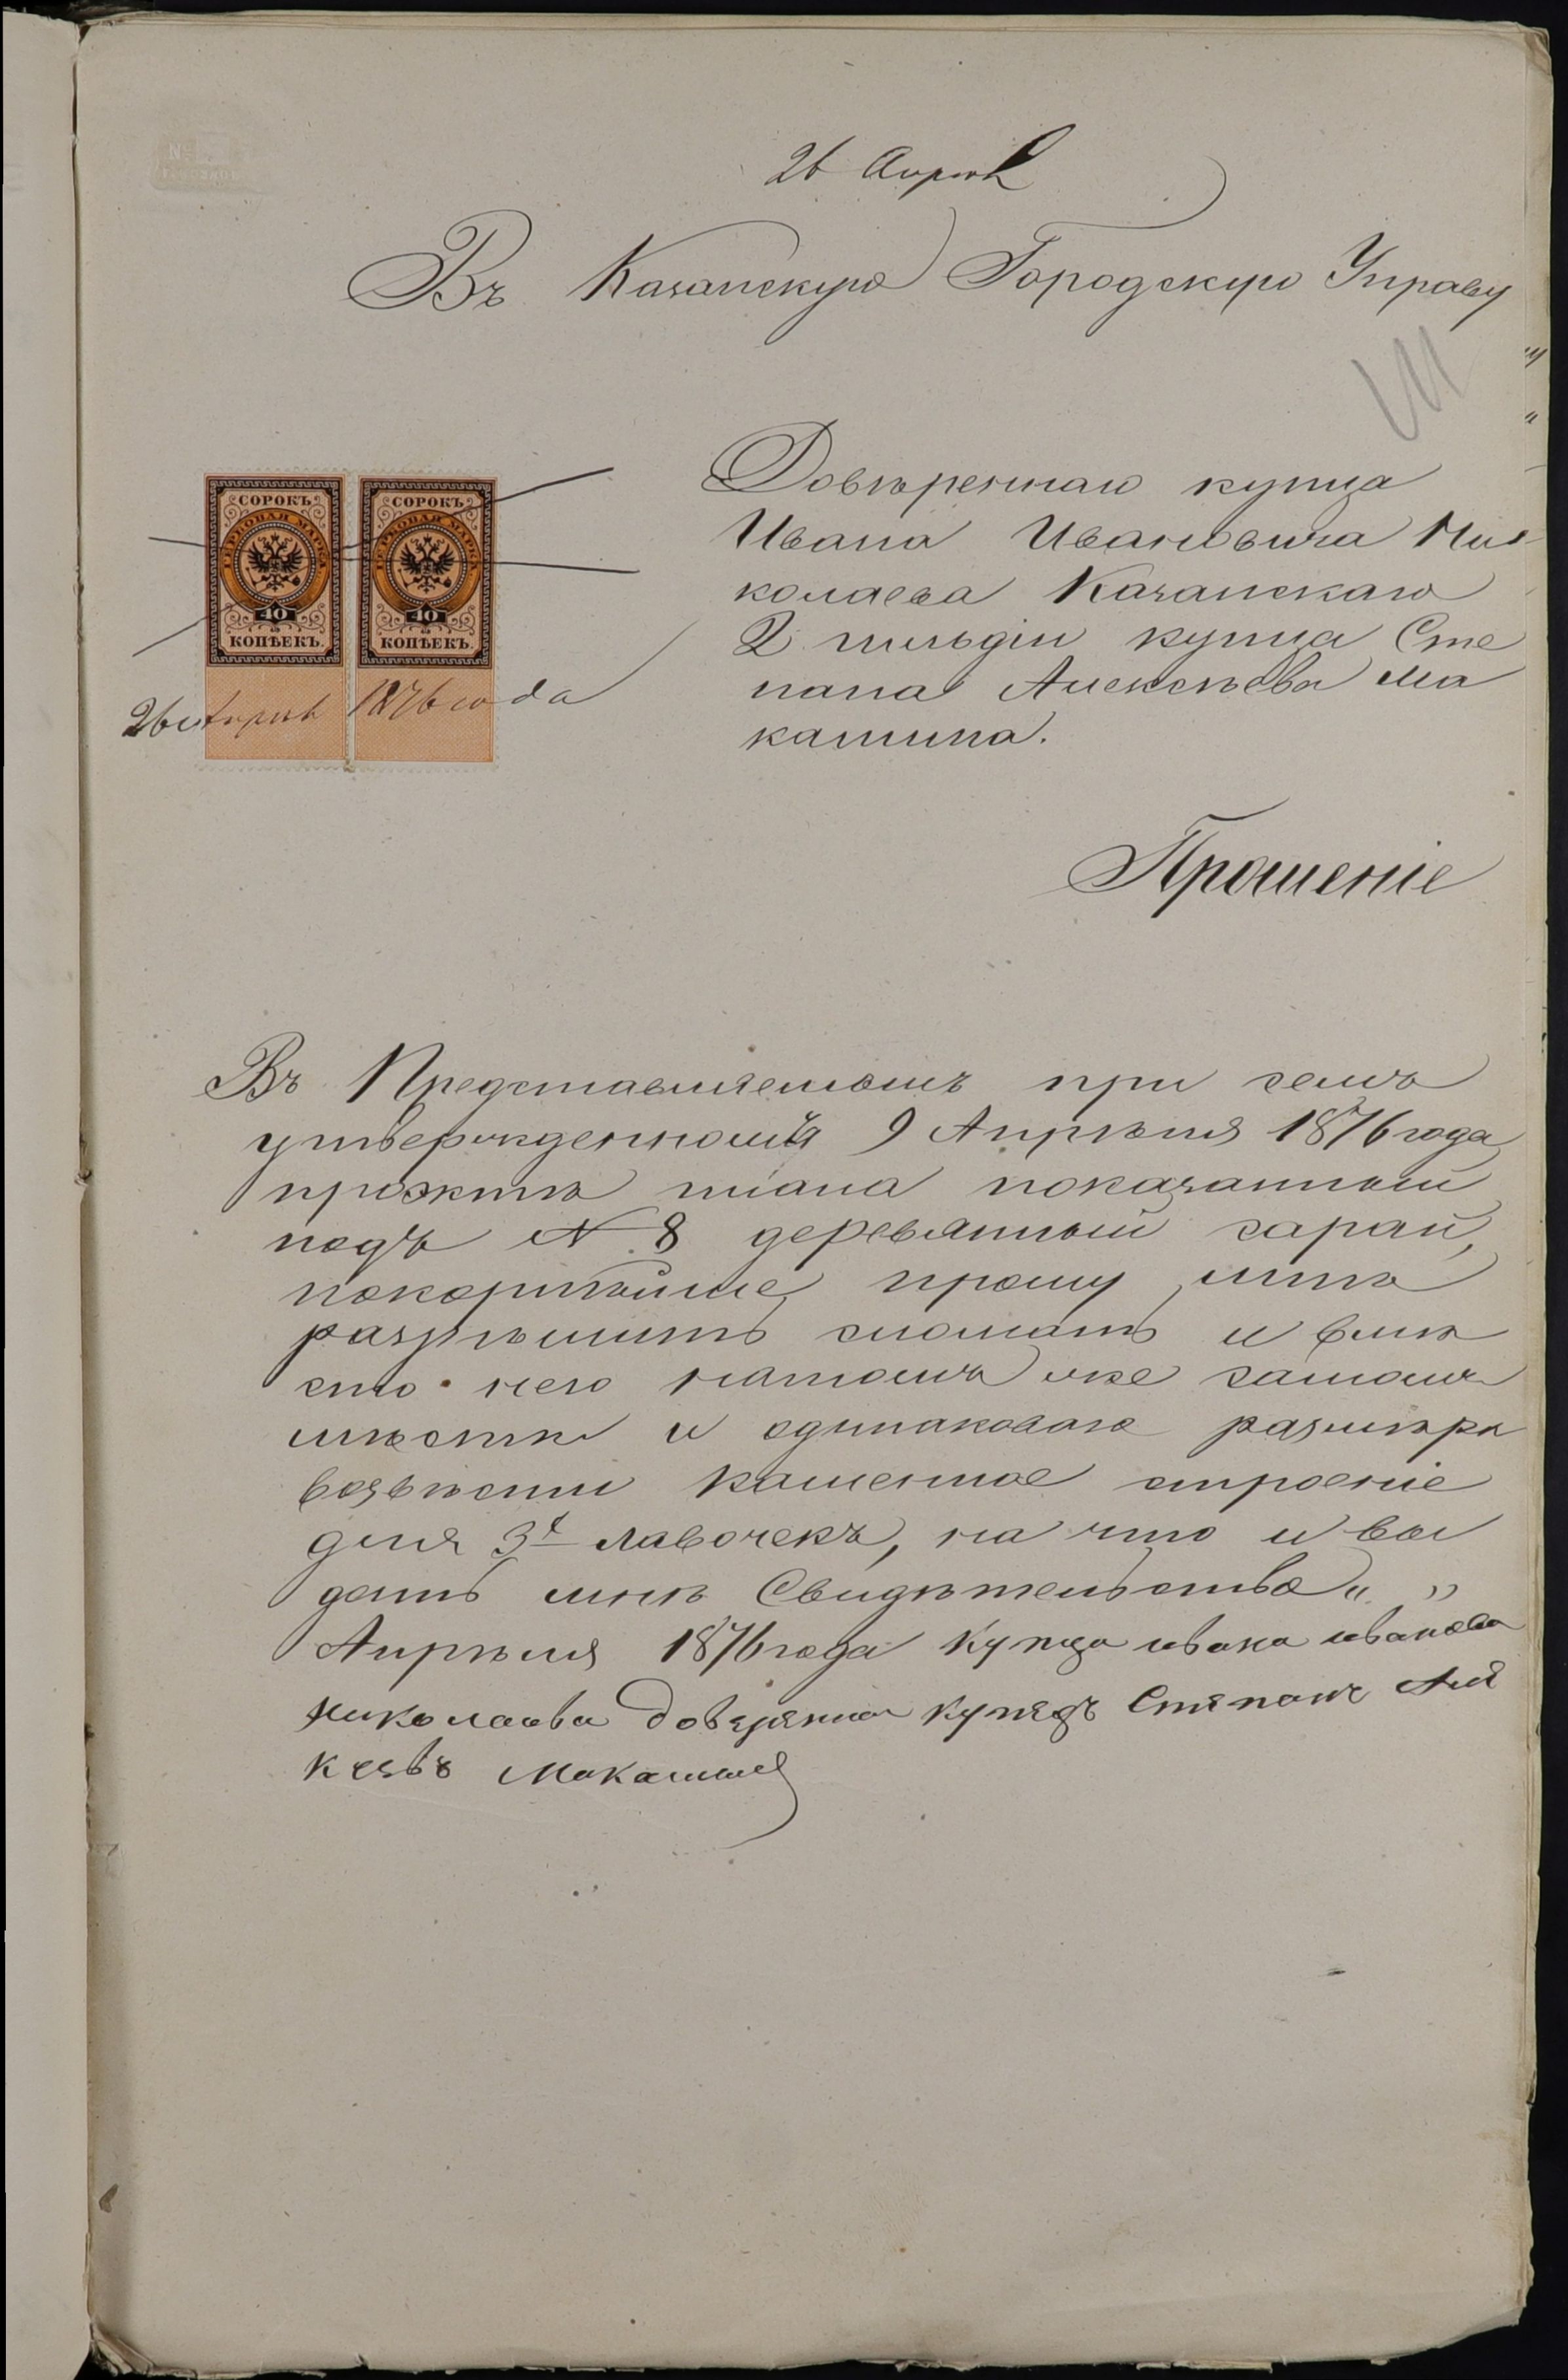 26 Апрѣл
Въ Казанскую Городскую Управу
Довѣреннаго купца
Ивана Ивановича Ни-
колаева Казанскаго
2 гильдіи купца Сте
пана Алексѣева Ма
кашина.
СОРОКЪ
ГЕРБОВАЯ МАРКА
40
КОПѢЕКЪ.
СОРОКЪ
ГЕРБОВАЯ МАРКА
40
КОПѢЕКЪ.
26 Апрѣл 1876 года
Прошеніе
Въ Представляемомъ при семъ
утвержденномъ 9 Апрѣля 1876 года
проэктѣ плана показанный
подъ № 8 деревянный сарай,
покорнѣйше прошу мнѣ
разрѣшить сломать и вмѣ
сто него натомъ же самомъ
мѣстѣ и одинаковаго размѣра
возвѣсти каменное строеніе
для 3х лавочекъ, на что и вы
дать мнѣ Свидѣтельство „ „
Апрѣля 1876 года Купца ивана иванова
николаева довѣрянной купецъ Стяпанъ Али
ксѣвъ Макашинъ